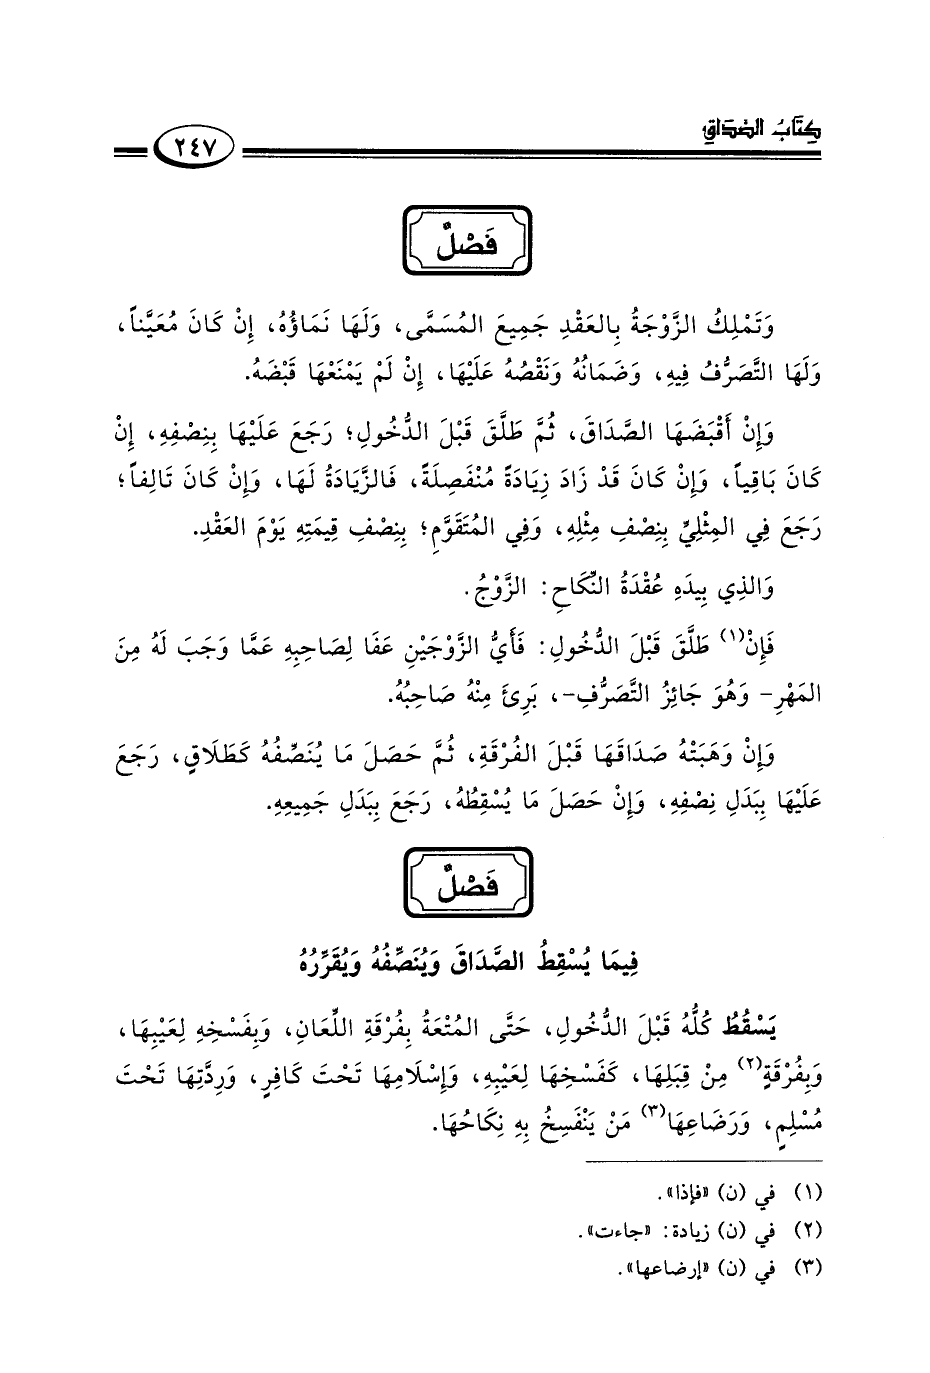 كِتَابُ الصَّدَاقِ
٢٤٧
فَصْلٌ
وَتَمْلِكُ الزَّوْجَةُ بِالعَقْدِ جَمِيعَ المُسَمَّى، وَلَهَا نَمَاؤُهُ، إِنْ كَانَ مُعَيَّناً،
وَلَهَا التَّصَرُّفُ فِيهِ، وَضَمَانُهُ وَنَقْصُهُ عَلَيْهَا، إِنْ لَمْ يَمْنَعْهَا قَبْضَهُ.
وَإِنْ أَقْبَضَهَا الصَّدَاقَ، ثُمَّ طَلَّقَ قَبْلَ الدُّخُولِ؛ رَجَعَ عَلَيْهَا بِنِصْفِهِ، إِنْ
كَانَ بَاقِياً، وَإِنْ كَانَ قَدْ زَادَ زِيَادَةً مُنْفَصِلَةً، فَالزِّيَادَةُ لَهَا، وَإِنْ كَانَ تَالِفاً؛
رَجَعَ فِي المِثْلِيِّ بِنِصْفِ مِثْلِهِ، وَفِي المُتَقَوَّمِ؛ بِنِصْفِ قِيمَتِهِ يَوْمَ العَقْدِ.
وَالذِي بِيدَهِ عُقْدَةُ النِّكَاحِ: الزَّوْجُ.
فَإِنْ(١) طَلَّقَ قَبْلَ الدُّخُولِ: فَأَيُّ الزَّوْجَيْنِ عَفَا لِصَاحِبِهِ عَمَّا وَجَبَ لَهُ مِنَ
المَهْرِ- وَهُوَ جَائِزُ التَّصَرُّفِ-، بَرِئَ مِنْهُ صَاحِبُهُ.
وَإِنْ وَهَبَتْهُ صَدَاقَهَا قَبْلَ الفُرْقَةِ، ثُمَّ حَصَلَ مَا يُنَصِّفُهُ كَطَلَاقٍ، رَجَعَ
عَلَيْهَا بِبَدَلِ نِصْفِهِ، وَإِنْ حَصَلَ مَا يُسْقِطُهُ، رَجَعَ بِبَدَلِ جَمِيعِهِ.
فَصْلٌ
فِيمَا يُسْقِطُ الصَّدَاقَ وَيُنَصِّفُهُ وَيُقَرِّرُهُ
يَسْقُطُ كُلُّهُ قَبْلَ الدُّخُولِ، حَتَّى المُتْعَةُ بِفُرْقَةِ اللِّعَانِ، وَبِفَسْخِهِ لِعَيْبِهَا،
وَبِفُرْقَةٍ(٢) مِنْ قِبَلِهَا، كَفَسْخِهَا لِعَيْبِهِ، وَإِسْلَامِهَا تَحْتَ كَافِرٍ، وَرِدَّتِهَا تَحْتَ
مُسْلِمٍ، وَرَضَاعِهَا(٣) مَنْ يَنْفَسِخُ بِهِ نِكَاحُهَا.
(١) في (ن) «فإذا».
(٢) في (ن) زيادة: «جاءت».
(٣) في (ن) «إرضاعها».